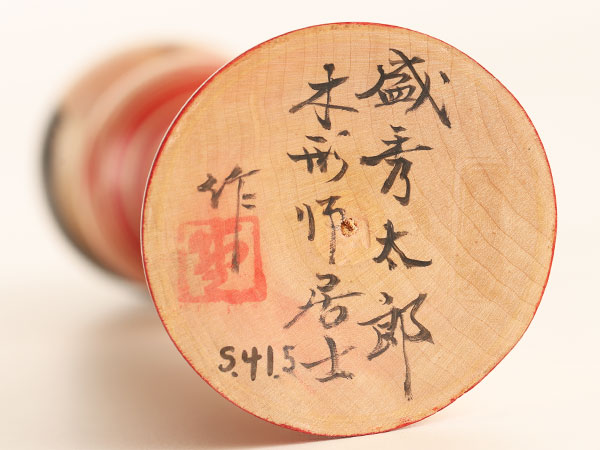 盛秀太郎
木形師居士
作
S.41.5